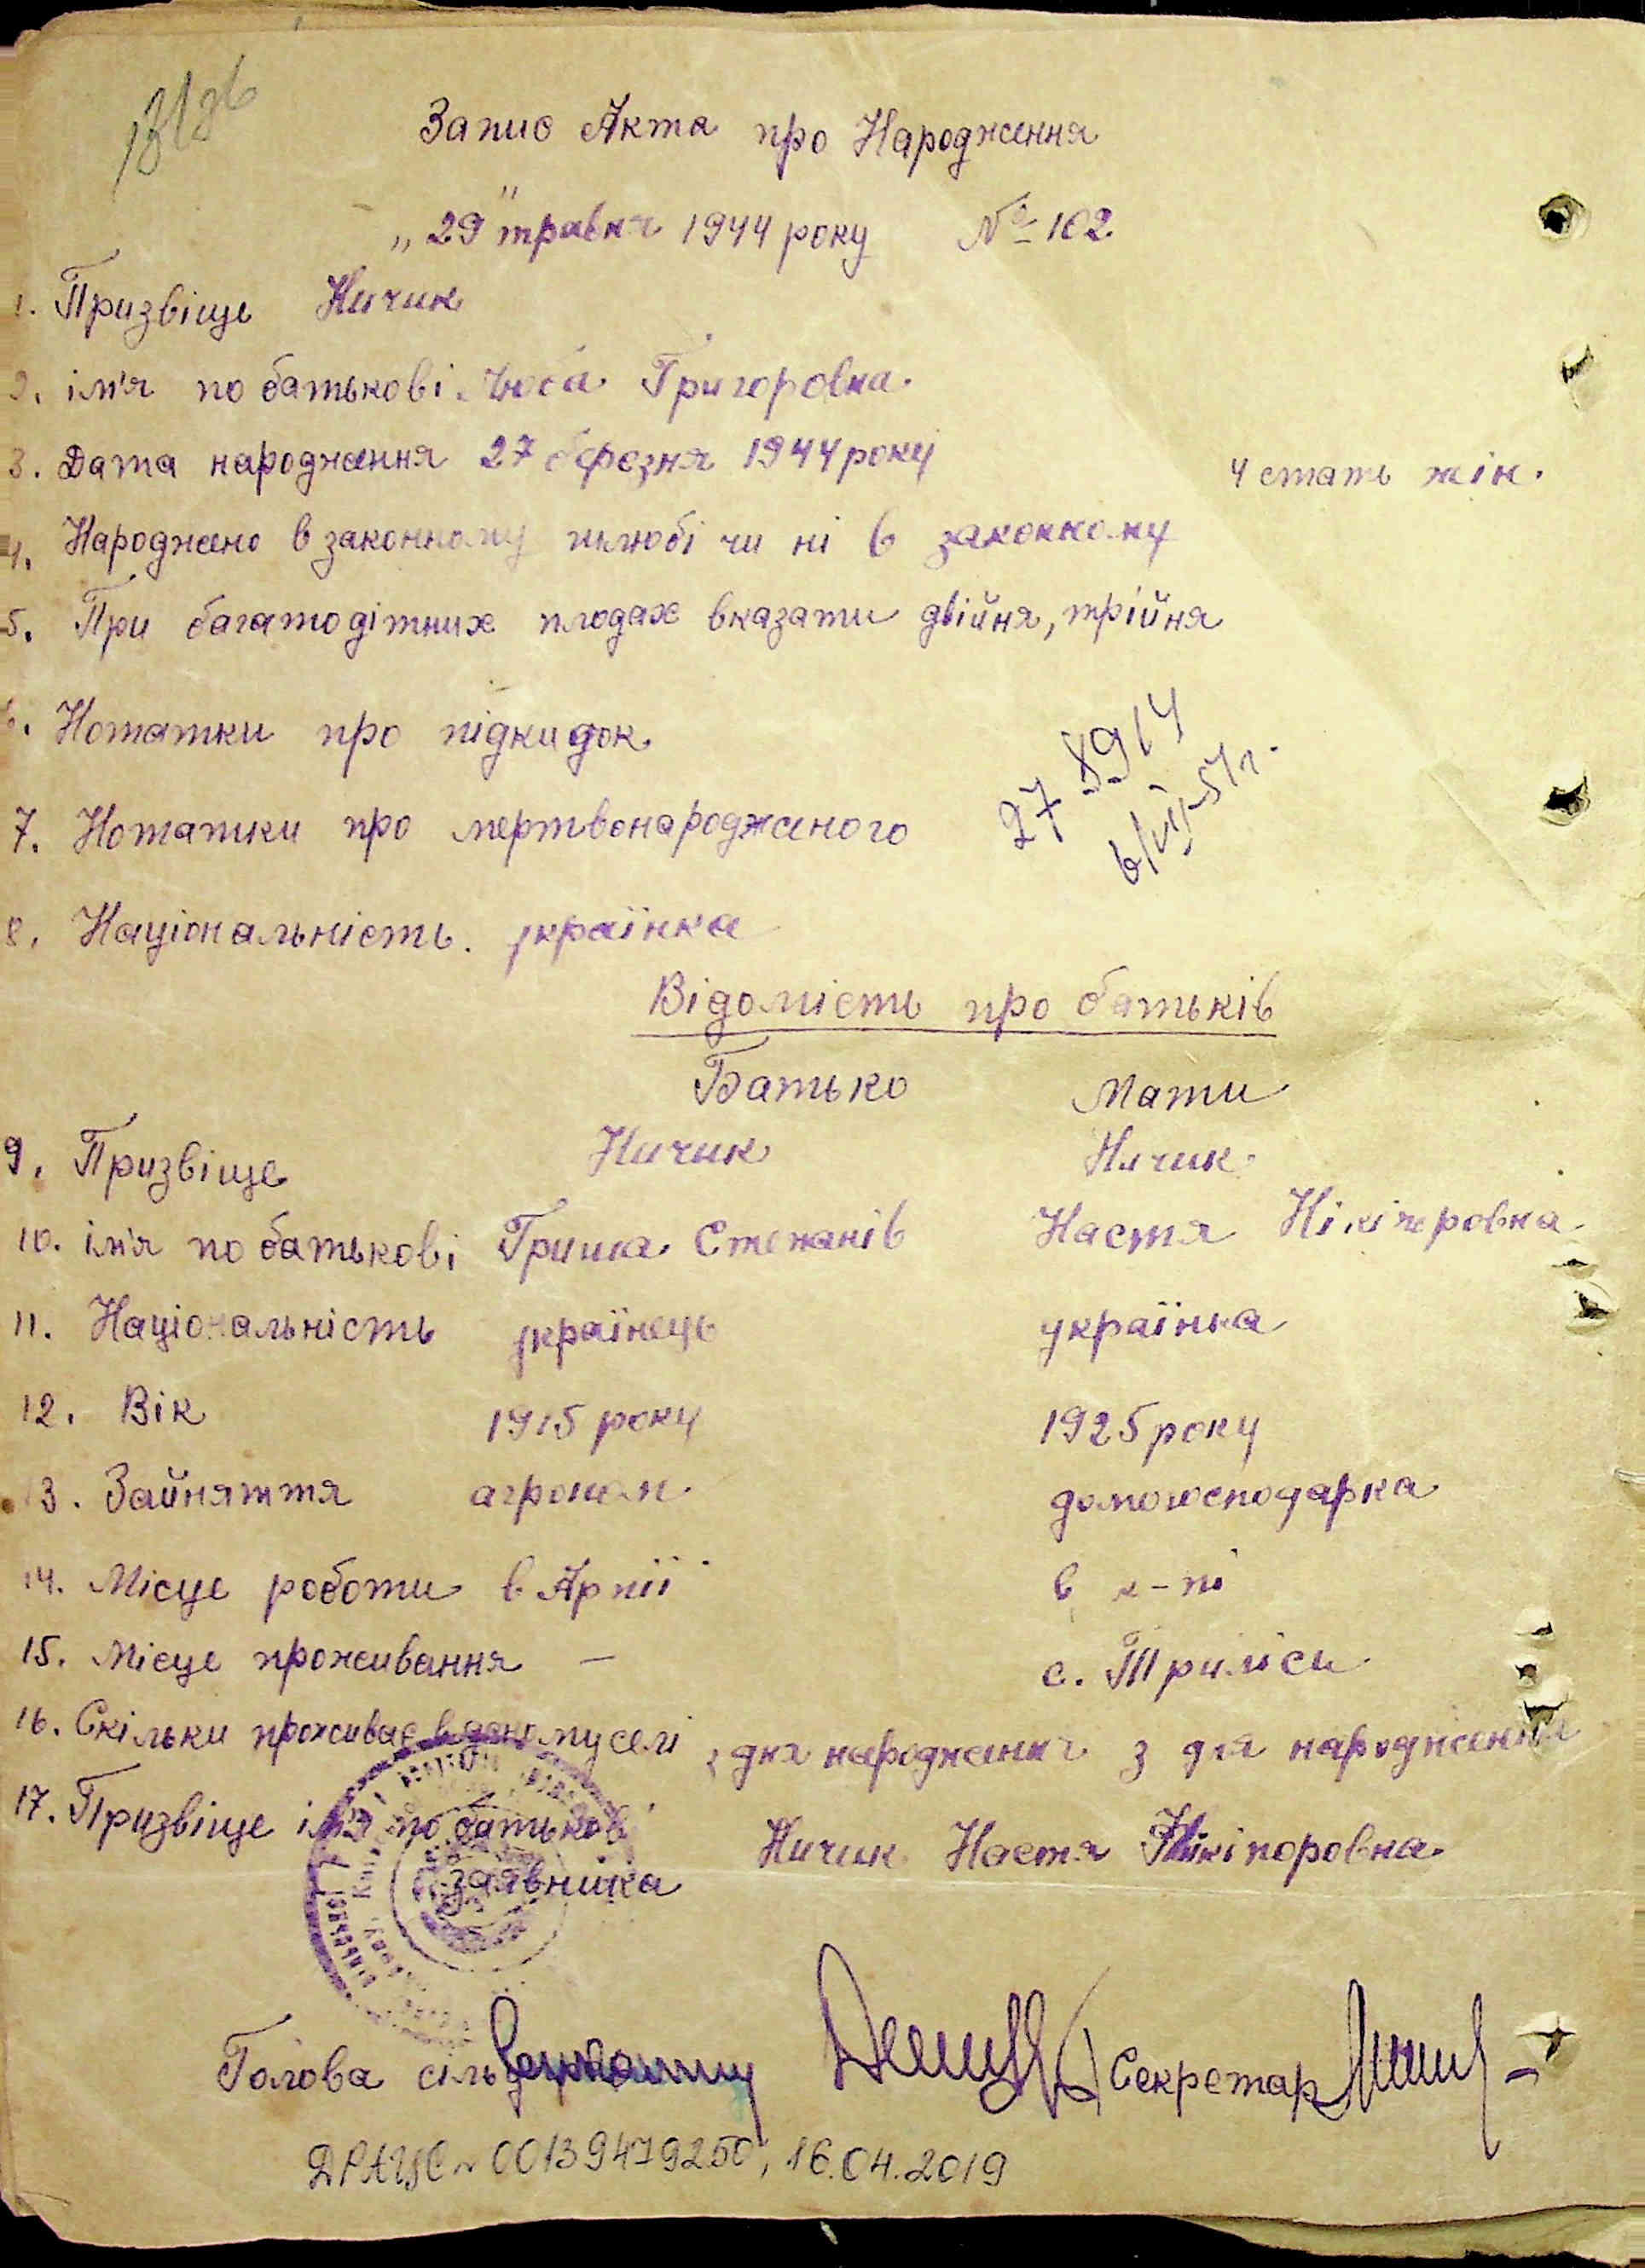 Запис Акта про Народження
„29" травня 1944 року № 102
1. Призвіще Ничик
2. ім'я по батькові Люба Григоровна.
3. Дата народження 27 березня 1944 року
4 стать жін.
4. Народжено в законному шлюбі чи ні в законному
5. При багатодітних плодах вказати двійня, трійня
6. Нотатки про підкидок
27 8914
6/VI-51 г.
7. Нотатки про мертвонародженого
8. Національність. українка
Відомість про батьків
Батько Мати
9. Призвіще Ничик Ничик
10. ім'я по батькові Гриша Степанів Настя Нікіпоровна
11. Національність українець українка
12. Вік 1915 року 1925 року
13. Зайняття агроном домогосподарка
14. Місце роботи в Армії в к-пі
15. Місце проживання — с. Триліси
16. Скільки проживає в даному селі з дня народження з дня народження
17. Призвіще ім'я по батькові
заявника Ничик Настя Нікіпоровна.
Голова сіль Секретар
ДРАЦС 00139479250, 16.04.2019